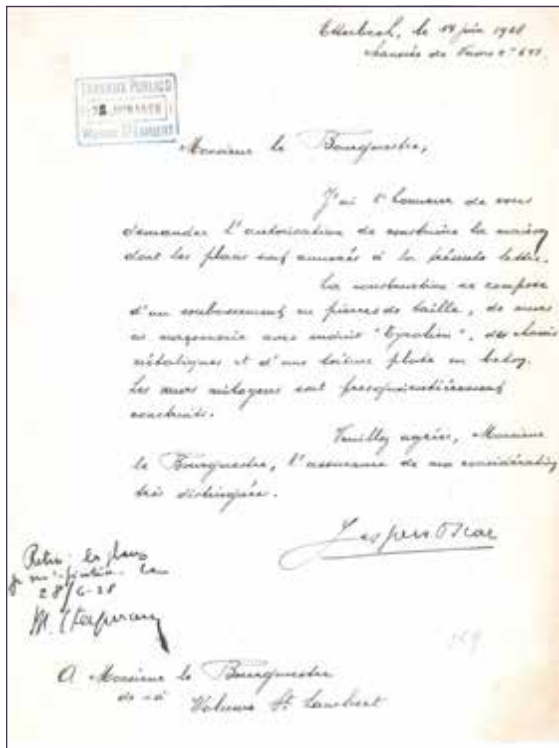 Etterbeek, le 14 juin 1928
chaussée de Wavre n°
TRAVAUX PUBLICS
WOLUWE ST LAMBERT
Monsieur le Bourgmestre,
J'ai l'honneur de vous
demander l'autorisation de construire la maison
dont les plans sont annexés à la présente lettre.
La construction se compose
d'un soubassement en pierres de taille, de murs
en maçonnerie avec enduit "Tyrolien", des chassis
métalliques et d'une toiture plate en beton.
Les murs mitoyens sont presqu'entièrement
construits.
Veuillez agréer, Monsieur
le Bourgmestre, l'assurance de ma considération
très distinguée.
Jespers Oscar
les plans
28/6-28
A Monsieur le Bourgmestre
de et à
Woluwe St. Lambert